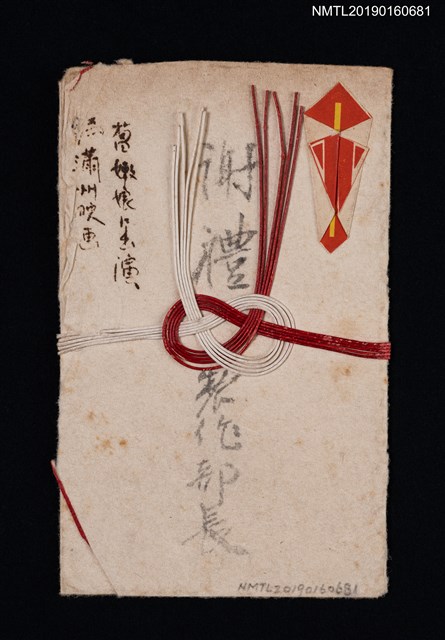 NMTL20190160681
謝禮
製作部長
萬嫩娘に出演
満洲映画
NMTL20190160681